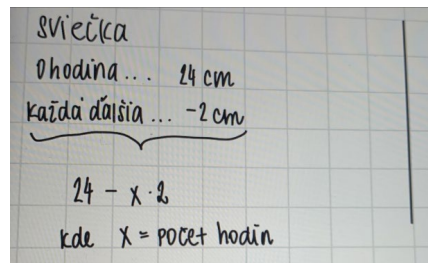 sviečka
0 hodina... 24 cm
každá ďalšia... -2 cm
24 - x · 2
kde x = počet hodín